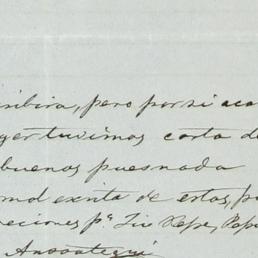 ribira, pero por si aca
yer tuvimos carta de
buenos pues nada
de estos, p
eciones pª Tio Pepe, Pepe
Ansoategui